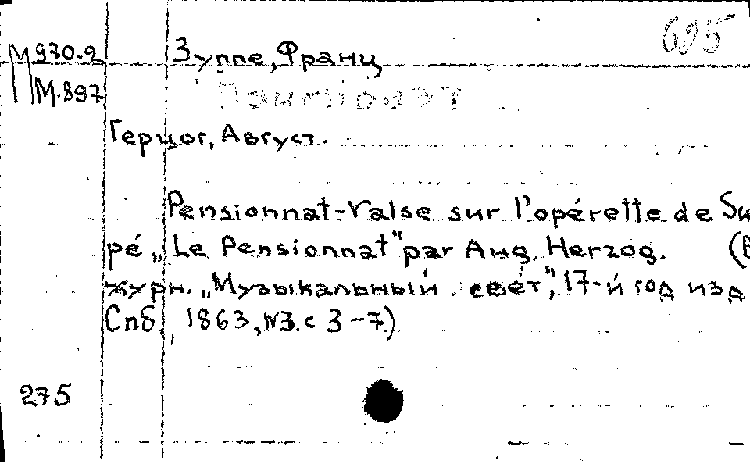 695
М 970.2 Зуппе, Франц
М.897 Пансионат
Герцог, Август.
Pensionnat-Valse sur l'opérette de Su
pé „Le Pensionnat" par Aug. Herzog. (В
журн. „Музыкальный свет", 17-й год изд
Спб, 1863, N3. с 3-7)
275